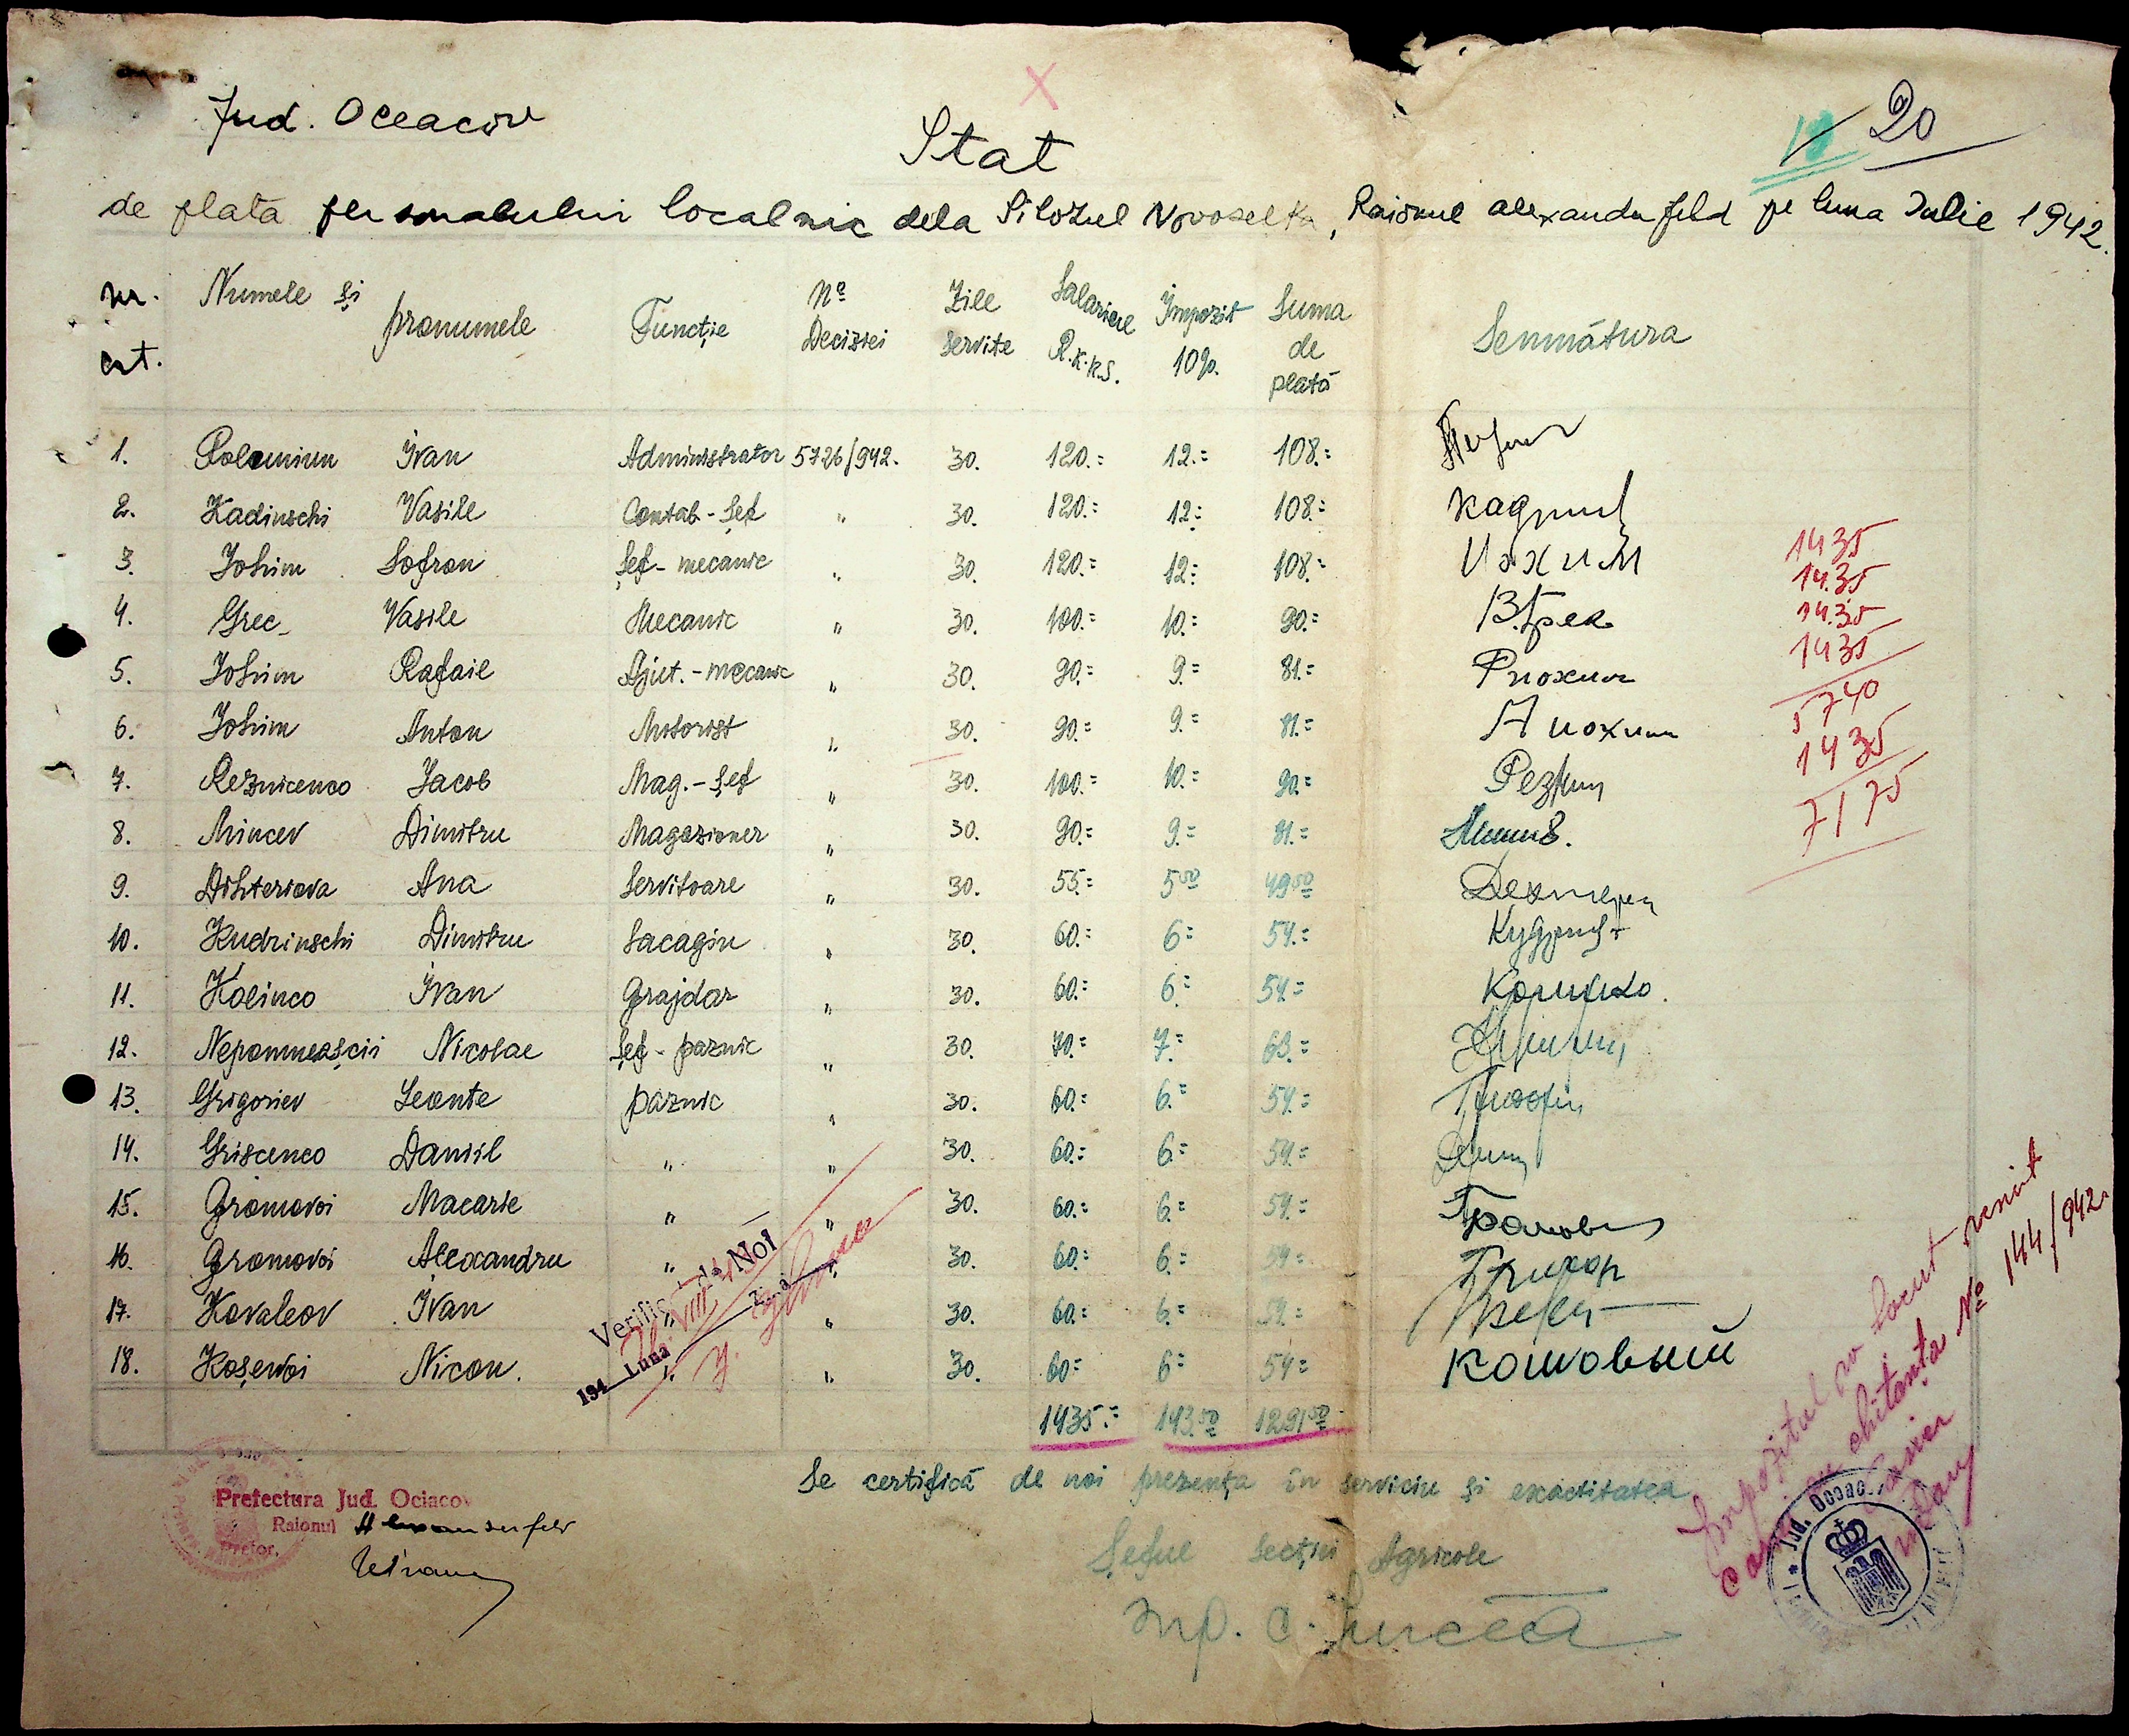 Jud. Oceacov
Stat
20
de plata personalului localnic dela Silozul Novoselka, Raionul alexanderfeld pe luna Iulie 1942.
Nr. crt. Numele și pronumele Funcție Nº Deciziei Zile servite Salariul R.K.K.S. Impozit 10%. Suma de plată Semnătura
1. Ivan Administrator 5726/942. 30. 120.= 12.= 108.=
2. Kadinschi Vasile Contab-Șef " 30. 120.= 12.= 108.=
3. Iohim Sofron Șef-mecanic " 30. 120.= 12.= 108.= Иохим
4. Grec Vasile Mecanic " 30. 100.= 10.= 90.= В.Грек
5. Iohim Rafail Ajut.-mecanic " 30. 90.= 9.= 81.= Риохим
6. Iohim Anton Motorist " 30. 90.= 9.= 81.= А иохим
7. Reznicenco Iacob Mag.-Șef " 30. 100.= 10.= 90.=
8. Mincev Dimitru Magazioner " 30. 90.= 9.= 81.=
9. Dihteriova Ana Servitoare " 30. 55.= 5.50 49.50
10. Kudrinschi Dimitru Sacagiu " 30. 60.= 6.= 54.=
11. Kolinco Ivan Grajdar " 30. 60.= 6.= 54.=
12. Nepomneașcii Nicolae Șef-paznic " 30. 70.= 7.= 63.=
13. Grigoriev Leonte paznic " 30. 60.= 6.= 54.=
14. Griscenco Daniil " " 30. 60.= 6.= 54.=
15. Gromovoi Macarie " " 30. 60.= 6.= 54.=
16. Gromovoi Alexandru " " 30. 60.= 6.= 54.=
17. Kovaleov Ivan " " 30. 60.= 6.= 54.=
18. Koșevoi Nicon. " " 30. 60.= 6.= 54.= Кошовый
1435.= 143.50 1291.50
1435
1435
1435
1435
5740
1435
7175
Verific. de Noi
194 Luna Ziua
Se certifică de noi prezența în serviciu și exactitatea
Șeful Secției Agricole
Prefectura Jud. Ociacov
Raionul Alexanderfeld
Pretor,
Impozitul
chitanța Nº 144/942.
Casier
Jud. Oceac